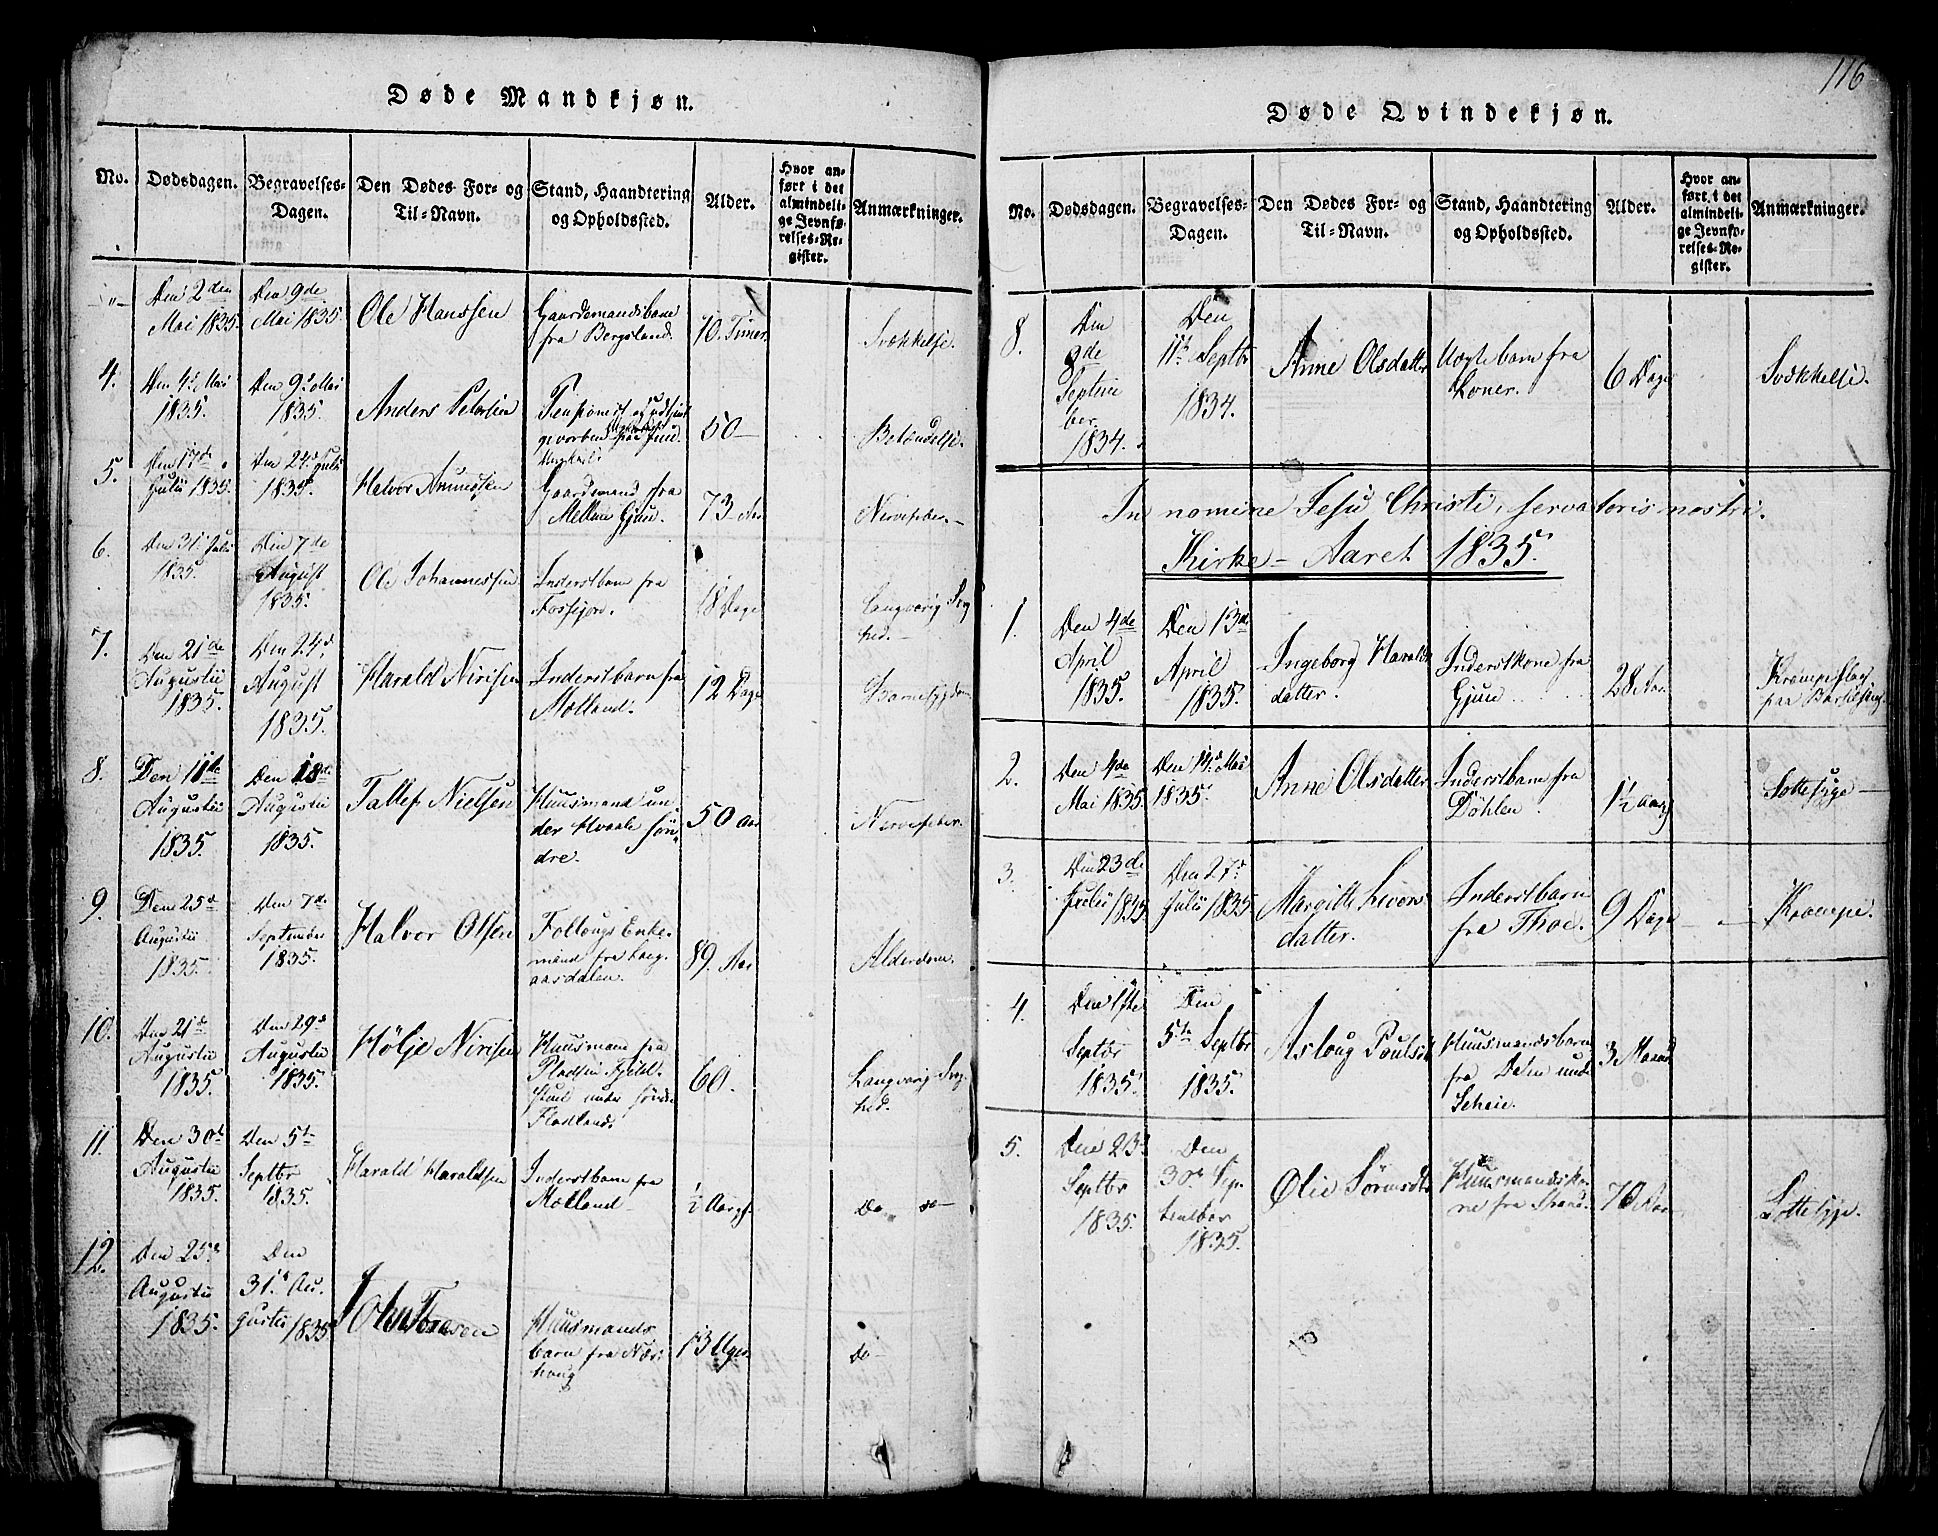 116
Døde Mandkjøn.
No.
Dødsdagen.
Begravelses-
Dagen.
Den Dødes For- og
Til-Navn.
Stand, Haandtering
og Opholdssted.
Alder.
Hvor an-
ført i det
almindeli-
ge Jevnfø-
relses-Re-
gister.
Anmærkninger.
Den 2den
Mai 1835.
Den 9de
Mai 1835.
Ole Hanssen
Gaardemandsbarn
fra Bergsland.
10. Timer
Svækkelse.
4.
Den 4de Mai
1835.
Den 9de Mai
1835.
Anders Petersen
50
Betændelse.
5.
Den 17de
Julii 1835.
Den 24de Julii
1835.
Halvor Aanundsen
Gaardemand fra
Mellem Gjuve.
73 Aar
Nervefeber.
6.
Den 31 Julii
1835.
Den 7de
August
1835.
Ole Johannessen
Inderstbarn fra
18 Dage
Langvarig Syg-
hed.
7.
Den 21de
Augustii
1835.
Den 24de
August
1835.
Harald Nirisen
Inderstbarn fra
Motland.
12 Dage
Barnesygdom
8.
Den 11te
Augustii
1835.
Den 18de
Augustii
1835.
Tallef Nielsen
Huusmand un-
der Hvaale søn-
dre.
50 Aar
Nervefeber.
9.
Den 25de
Augustii
1835.
Den 7de
September
1835.
Halvor Olsen
Follougs Enke-
mand fra
aasdalen.
89. Aar
Alderdom.
10.
Den 21de
Augustii
1835.
Den 29de
Augustii
1835.
Hölje Nirisen
Huusmand fra
Pladsen Fjeld-
under søndre
Flatland.
60.
Langvarig Syg-
hed.
11.
Den 30te
Augustii
1835.
Den 5te
Septbr
1835.
Harald Haraldsen
Inderstbarn fra
Motland
½ Aargl.
Do do
12.
Den 25de
Augustii
1835.
Den
31te Au-
gustii 1835
John
Huusmands
barn fra
haug
13 Uger
do
Døde Qvindekjøn.
No.
Dødsdagen.
Begravelses-
Dagen.
Den Dødes For- og
Til-Navn.
Stand, Haandtering
og Opholdssted.
Alder.
Hvor an-
ført i det
almindeli-
ge Jevnfø-
relses-Re-
gister.
Anmærkninger.
8.
Den
Septem
ber
1834.
Den
11te Septbr
1834.
Anne Olsdatter
Uægte barn fra
6 Dage
Svækkelse.
In nomine Jesu Christi, servatoris nostri.
Kirke-Aaret 1835.
1.
Den 4de
April
1835.
Den 13de
April
1835.
Ingeborg Haralds
datter.
Inderstkone fra
Gjuve
28 Aar
Krampeslag
paa Barselseng.
2.
Den 4de
Mai 1835
Den Mai
1835.
Anne Olsdatter
Inderstbarn fra
Döhlen
1½ Aargl
Sottesyge
3.
Den 23de
Julii 1835
Den 27de
Julii 1835
Margitte
datter.
Inderstbarn
fra Thoe.
9 Dage
Krampe.
4.
Den 1ste
Septbr
1835.
Den
5te Septbr
1835.
Asloug Poulsdt
Huusmandsbarn
fra Dalen under
Scheie.
3 Maand
5.
Den 23de
Septbr
1835.
Den
30te Sep-
tember
1835.
Olie
Huusmandsko-
ne fra Strand.
70 Aar
Sottesyge.